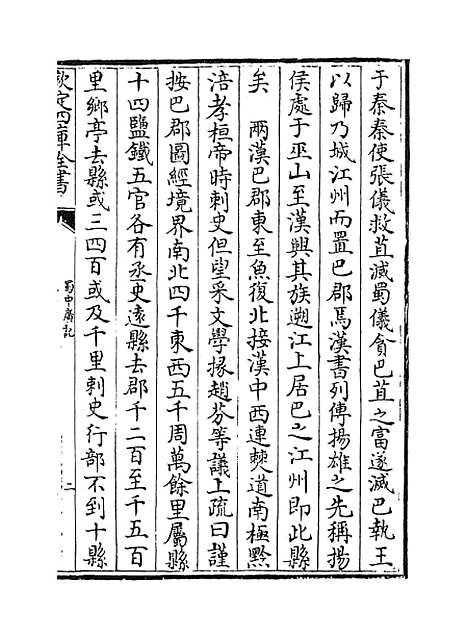 于秦秦使張儀救苴滅蜀儀貪巴苴之富遂滅巴執王
以歸乃城江州而置巴郡焉漢書列傳揚雄之先稱揚
侯處于巫山至漢興其族遡江上居巴之江州即此縣
矣　兩漢巴郡東至魚復北接漢中西連僰道南極黔
涪孝桓帝時刺史但望采文學掾趙芬等議上疏曰謹
按巴郡圖經境界南北四千東西五千周萬餘里屬縣
十四鹽鐵五官各有丞吏遠縣去郡千二百至千五百
里鄉亭去縣或三四百或及千里刺史行部不到十縣
欽定四庫全書
蜀中廣記
二